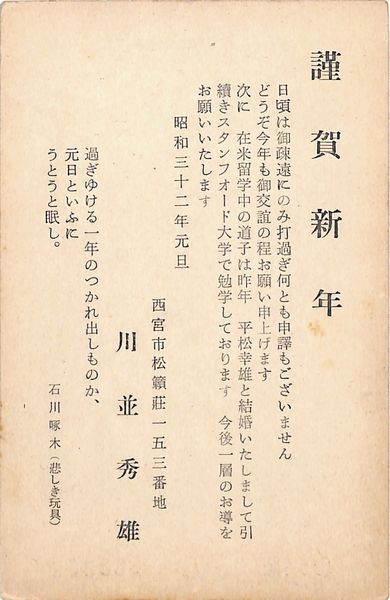 謹賀新年
日頃は御疎遠にのみ打過ぎ何とも申譯もございません
どうぞ今年も御交誼の程お願い申上げます
次に　在米留学中の道子は昨年　平松幸雄と結婚いたしまして引
續きスタンフオード大学で勉学しております　今後一層のお導を
お願いいたします
昭和三十二年元旦
西宮市松籟荘一五三番地
川並秀雄
過ぎゆける一年のつかれ出しものか、
元日といふに
うとうと眠し。
石川啄木（悲しき玩具）